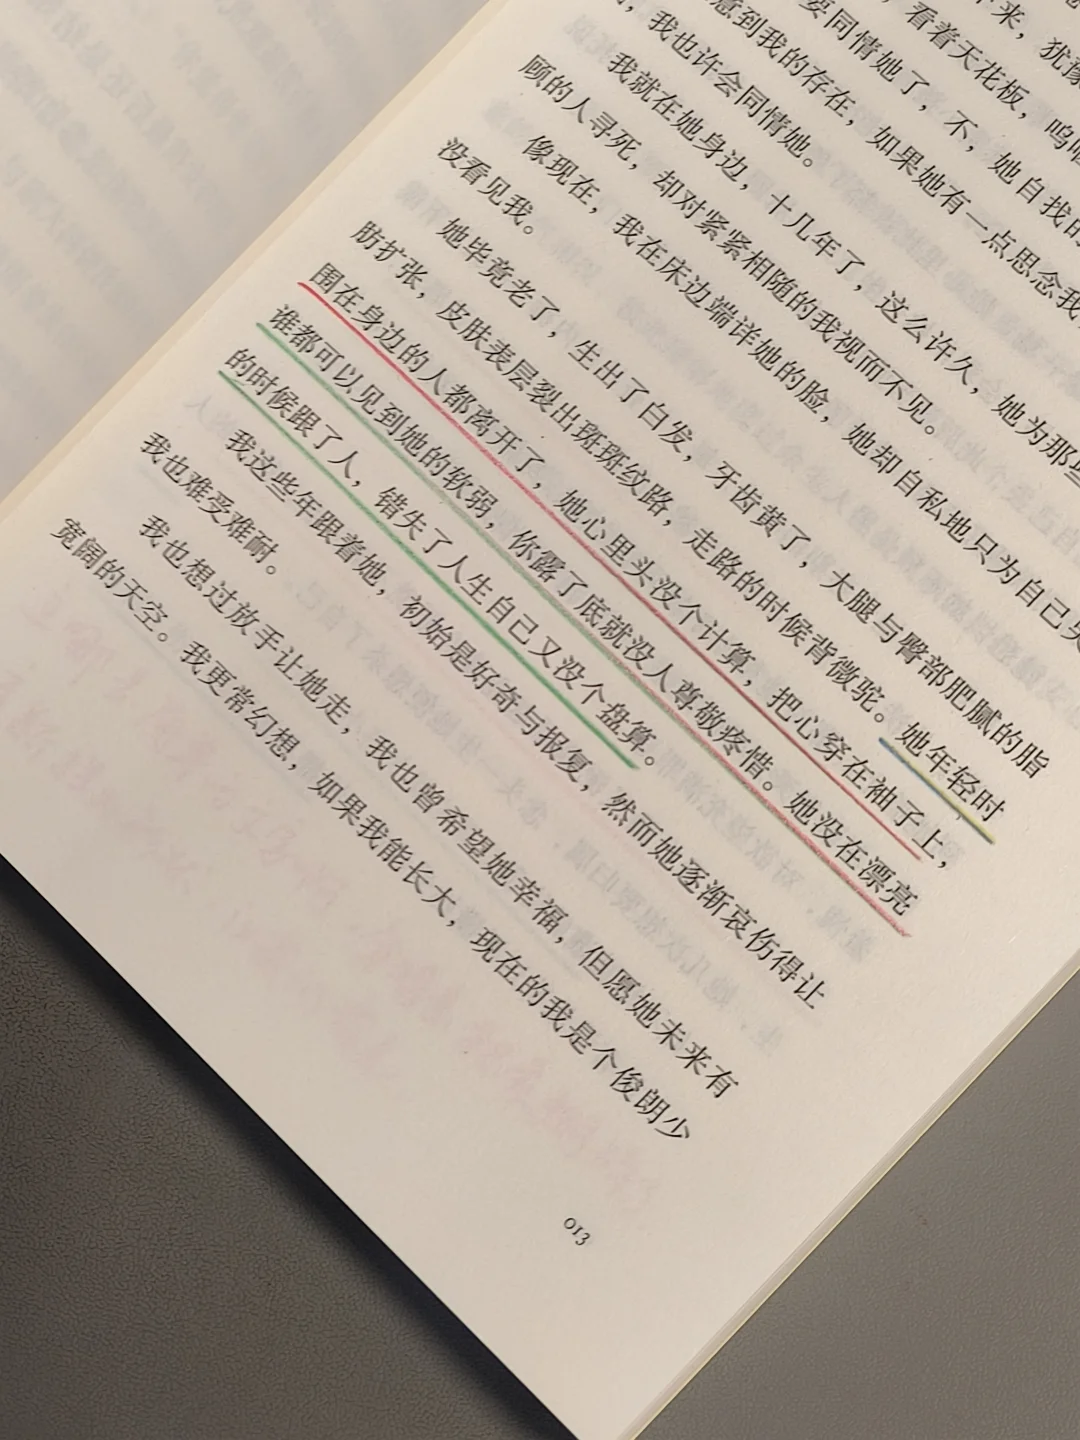 来，犹豫
，看着天花板，呜咽
要同情她了，不，她自找的
意到我的存在，如果她有一点思念我
，我也许会同情她。
我就在她身边，十几年了，这么许久，她为那些
顾的人寻死，却对紧紧相随的我视而不见。
像现在，我在床边端详她的脸，她却自私地只为自己哭
没看见我。
她毕竟老了，生出了白发，牙齿黄了，大腿与臀部肥腻的脂
肪扩张，皮肤表层裂出斑斑纹路，走路的时候背微驼。她年轻时
围在身边的人都离开了，她心里头没个计算，把心穿在袖子上，
谁都可以见到她的软弱，你露了底就没人尊敬疼惜。她没在漂亮
的时候跟了人，错失了人生自己又没个盘算。
我这些年跟着她，初始是好奇与报复，然而她逐渐哀伤得让
我也难受难耐。
我也想过放手让她走，我也曾希望她幸福，但愿她未来有
宽阔的天空。我更常幻想，如果我能长大，现在的我是个俊朗少
013